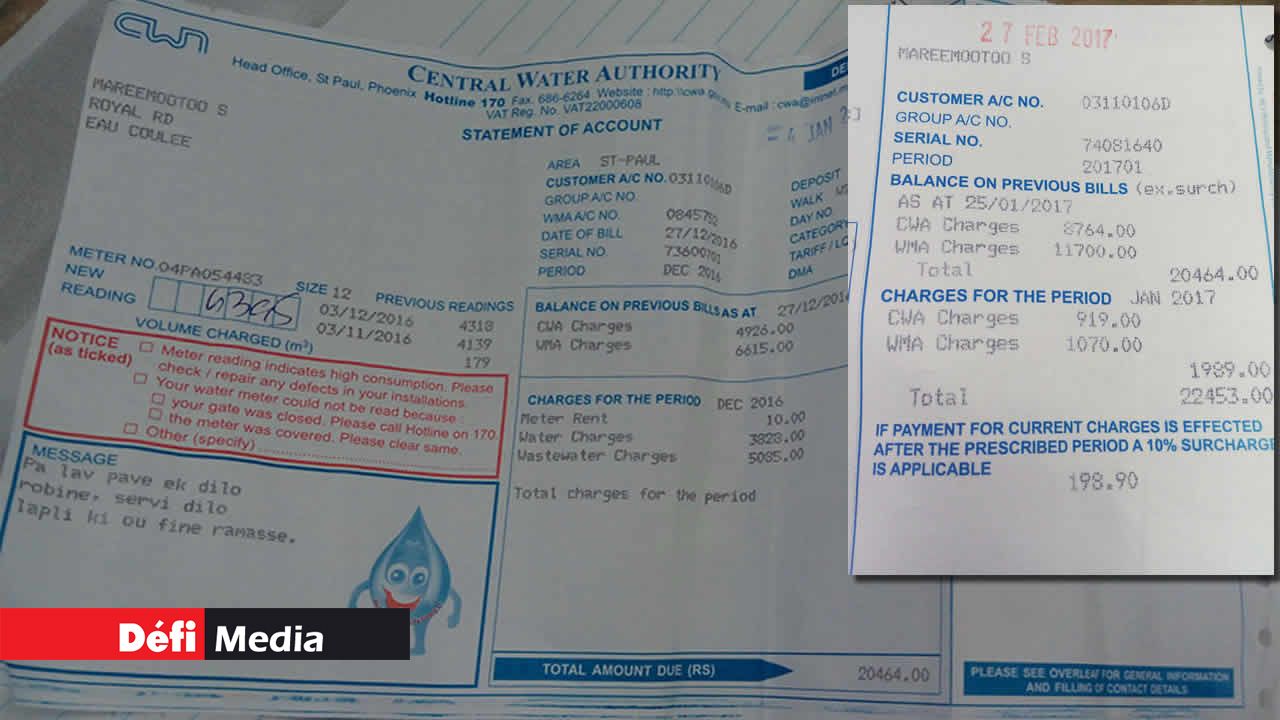 CWA
CENTRAL WATER AUTHORITY
Head Office, St Paul, Phoenix Hotline 170 Fax. 686-6264 Website : http://cwa.gov.mu E-mail : cwa@intnet.mu
VAT Reg. No. VAT22000608
STATEMENT OF ACCOUNT
MAREEMOOTOO S
ROYAL RD
EAU COULEE
4 JAN
AREA ST-PAUL
CUSTOMER A/C NO. 03110106D
GROUP A/C NO.
WMA A/C NO. 0845752
DATE OF BILL 27/12/2016
SERIAL NO. 73600701
PERIOD DEC 2016
DEPOSIT
WALK
DAY NO.
CATEGORY
TARIFF / LC
DMA
METER NO. 04PA054483 SIZE 12
NEW
READING
PREVIOUS READINGS
03/12/2016 4318
03/11/2016 4139
VOLUME CHARGED (m³) 179
NOTICE
(as ticked)
Meter reading indicates high consumption. Please
check / repair any defects in your installations.
Your water meter could not be read because :
your gate was closed. Please call Hotline on 170.
the meter was covered. Please clear same.
Other (specify)
MESSAGE
Pa lav pave ek dilo
robine, servi dilo
lapli ki ou fine ramasse.
BALANCE ON PREVIOUS BILLS AS AT 27/12/2016
CWA Charges 4926.00
WMA Charges 6615.00
CHARGES FOR THE PERIOD DEC 2016
Meter Rent 10.00
Water Charges 3828.00
Wastewater Charges 5085.00
Total charges for the period
TOTAL AMOUNT DUE (RS) 20464.00
PLEASE SEE OVERLEAF FOR GENERAL INFORMATION
AND FILLING OF CONTACT DETAILS
27 FEB 2017
MAREEMOOTOO S
CUSTOMER A/C NO. 03110106D
GROUP A/C NO.
SERIAL NO. 74081640
PERIOD 201701
BALANCE ON PREVIOUS BILLS (ex.surch)
AS AT 25/01/2017
CWA Charges 8764.00
WMA Charges 11700.00
Total 20464.00
CHARGES FOR THE PERIOD JAN 2017
CWA Charges 919.00
WMA Charges 1070.00
1989.00
Total 22453.00
IF PAYMENT FOR CURRENT CHARGES IS EFFECTED
AFTER THE PRESCRIBED PERIOD A 10% SURCHARGE
IS APPLICABLE
198.90
Défi Media